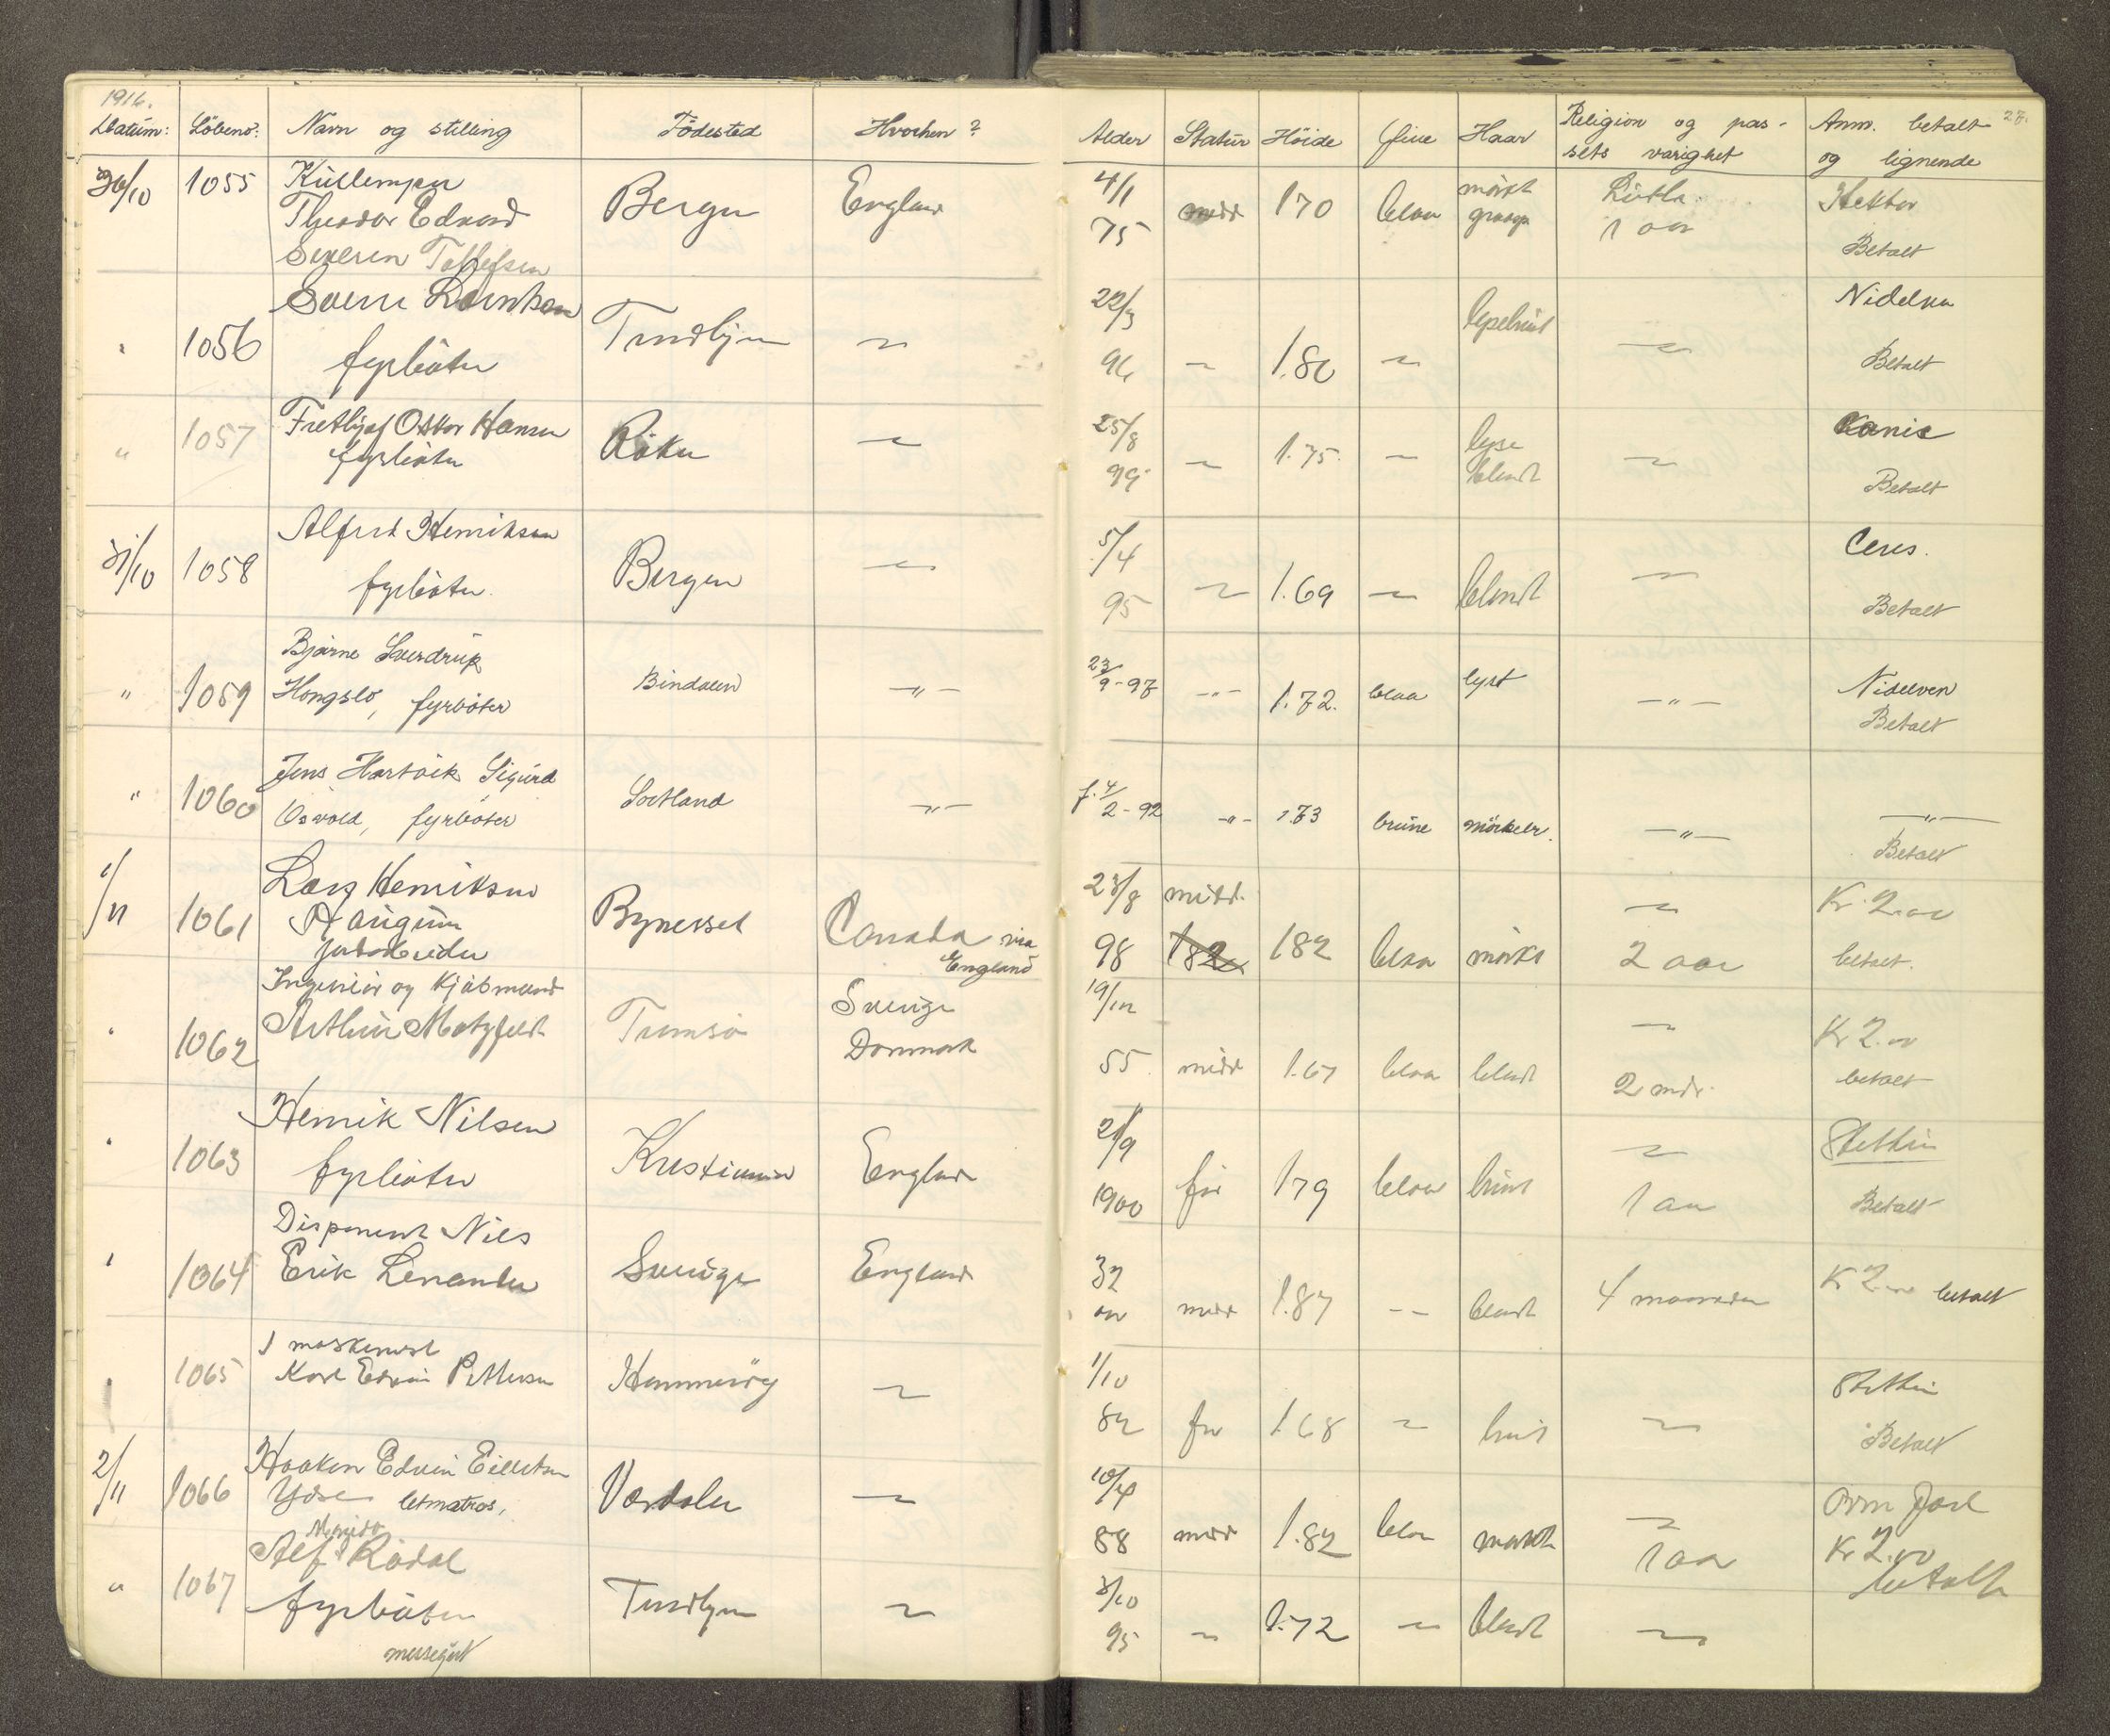 1916.
Datum: Löbeno: Navn og stilling Födested Hvorhen? Alder Statur Höide Öine Haar Religion og pas- Anm. betalt 28.
sets varighet og lignende
30/10 1055 Küllemper Bergen England 4/1 midd 170 blaa mörkt Luth. Hektor
Theodor Edvard 75 graagr 1 aar
Severin Tollefsen Betalt
1056 Sverre Trondhjem 22/3 Nidelven
fyrböter 96 1.80 Betalt
" 1057 Frethjof Oskar Hansen 25/8 1.75 lyse Kania
fyrböter 99 blondt Betalt
31/10 1058 Alfred Henriksen Bergen 5/4 1.69 blondt Ceres.
fyrböter. 95 Betalt
" 1059 Bjarne Sverdrup Bindalen -"- 23/9-97 -"- 1.72. blaa lyst -"- Nidelven
Hongslo, fyrböter Betalt
" 1060 Jens Hartvik Sigurd Sortland -"- f. 4/2-92 -"- 1.73 brune mörkebr. -"- -"-
Osvold, fyrböter Betalt
1/11 1061 Lars Henriksen Bynesset Canada via England 23/8 midd. Kr. 2.00
Haugum 98 182 182 blaa mörkt 2 aar betalt.
1062 Ingeniör og Kjöbmand Tromsö Sverige 19/12 Kr 2.00
Arthur Motzfeldt Danmark 55 midd 1.67 blaa blondt 2 mdr. betalt
1063 Henrik Nilsen Kristiania England 21/9 Stettin
fyrböter 1900 179 blaa brunt 1 aar Betalt
1064 Disponent Nils Sverige England 32 Kr 2.00 betalt
Erik Lenander aar midd 1.87 -- blondt 4 maaneder
1065 1 maskinist Hammeröy 1/10 Stettin
Karl Edvin Pettersen 82 1.68 brunt Betalt
2/11 1066 Haakon Edvin Eilertsen Værdalen 10/4 Orm Jarl
Ydse letmatros, 88 midd 1.82 blaa mörkt 1 aar Kr 2.00
betalt
" 1067 Alf Rödal Trondhjem 3/10
fyrböter 95 1.72 blondt
messegut